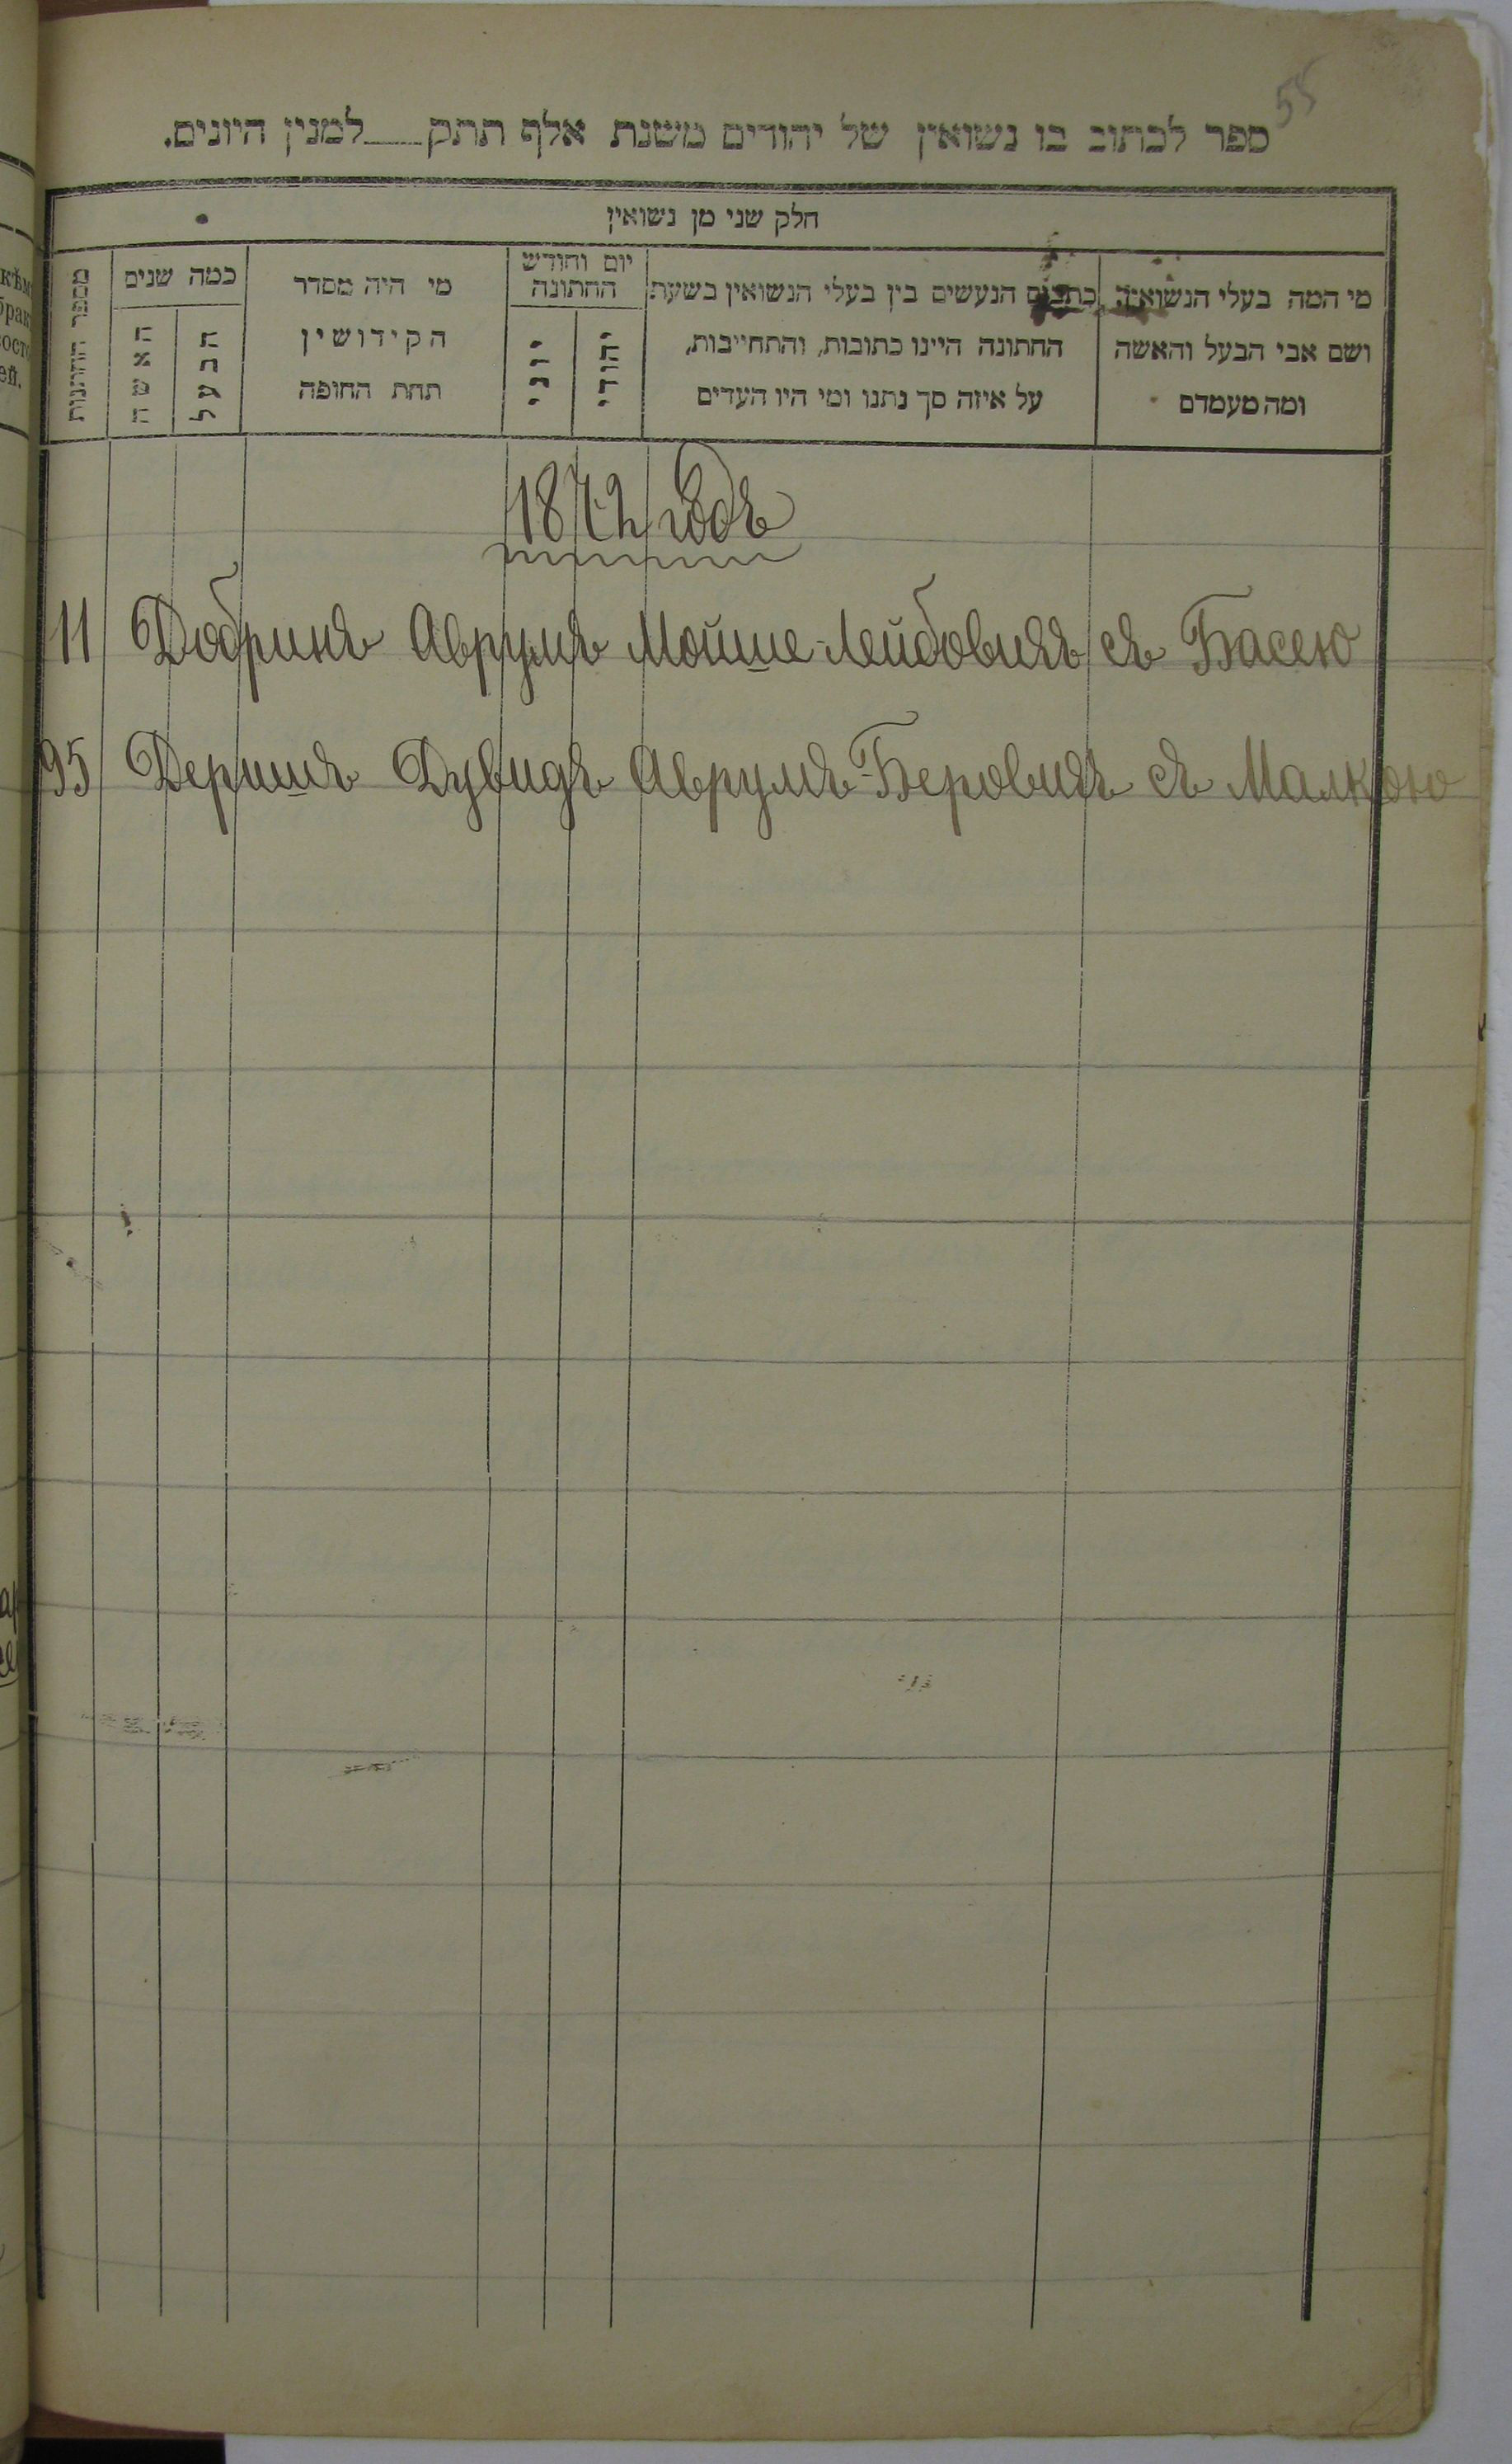 55
ספר לכתוב בו נשואין של יהודים משנת אלף תתק למנין היונים.
חלק שני מן נשואין
מי המה בעלי הנשואין
ושם אבי הבעל והאשה
ומה מעמדם
הנעשים בין בעלי הנשואין בשעת
החתונה היינו כתובות, והתחייבות,
על איזה סך נתנו ומי היו העדים
יום וחודש
החתונה
יהודי
יוני
מי היה מסדר
הקידושין
תחת החופה
כמה שנים
הבעל
האשה
מספר
1872 годъ
11 Добринъ Аврумъ Мойше-Лейбовичъ съ Басею
95 Дершъ Дувидъ Аврумъ-Беровичъ съ Малкою